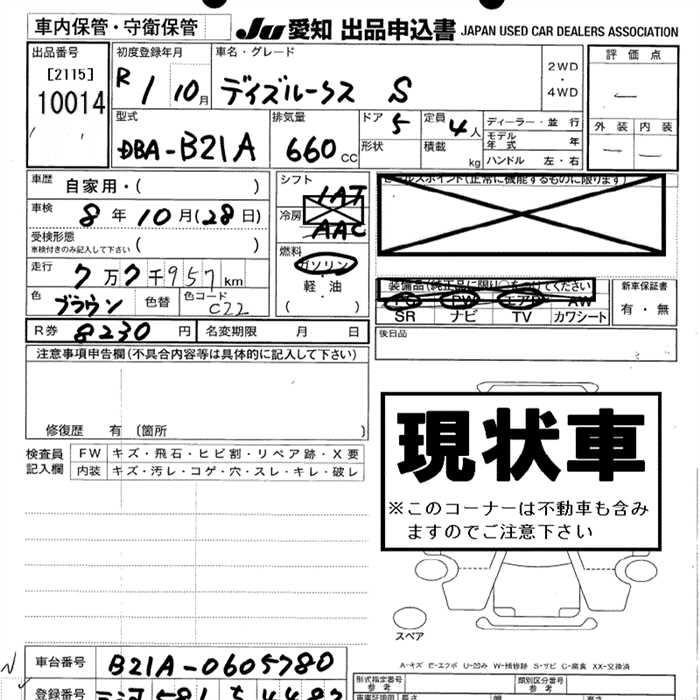 車内保管・守衛保管
JU 愛知 出品申込書 JAPAN USED CAR DEALERS ASSOCIATION
出品番号
[2115]
10014
初度登録年月
R 1 10月
車名・グレード
デイズルークス S
2WD
・
4WD
評価点
―
外装 内装
― ―
型式
DBA-B21A
排気量
660 cc
ドア
5
形状
定員
4人
積載
kg
ディーラー・並行
モデル年式 年
ハンドル 左・右
車歴 自家用・( )
車検 8年10月(28日)
受検形態
車検付きのみ記入して下さい ( )
走行 7万7千957km
色 ブラウン 色替 色コード C22
R券 8230円 名変期限 月 日
シフト IAT
冷房 AAC
燃料
ガソリン
・
軽・油
( )
セールスポイント(正常に機能するものに限ります)
装備品(純正品に限り○をつけてください)
PS PW エアB AW
SR ナビ TV カワシート
新車保証書
有・無
後日品
注意事項申告欄(不具合内容等は具体的に記入して下さい)
修復歴 有 〔箇所 〕
検査員
記入欄
FW キズ・飛石・ヒビ割・リペア跡・X要
内装 キズ・汚レ・コゲ・穴・スレ・キレ・破レ
現状車
※このコーナーは不動車も含み
ますのでご注意下さい
スペア
A-キズ E-エクボ U-凹み W-補修跡 S-サビ C-腐食 XX-交換済
車台番号 B21A-0605780
登録番号
形式指定番号
参考
類別区分番号
参考